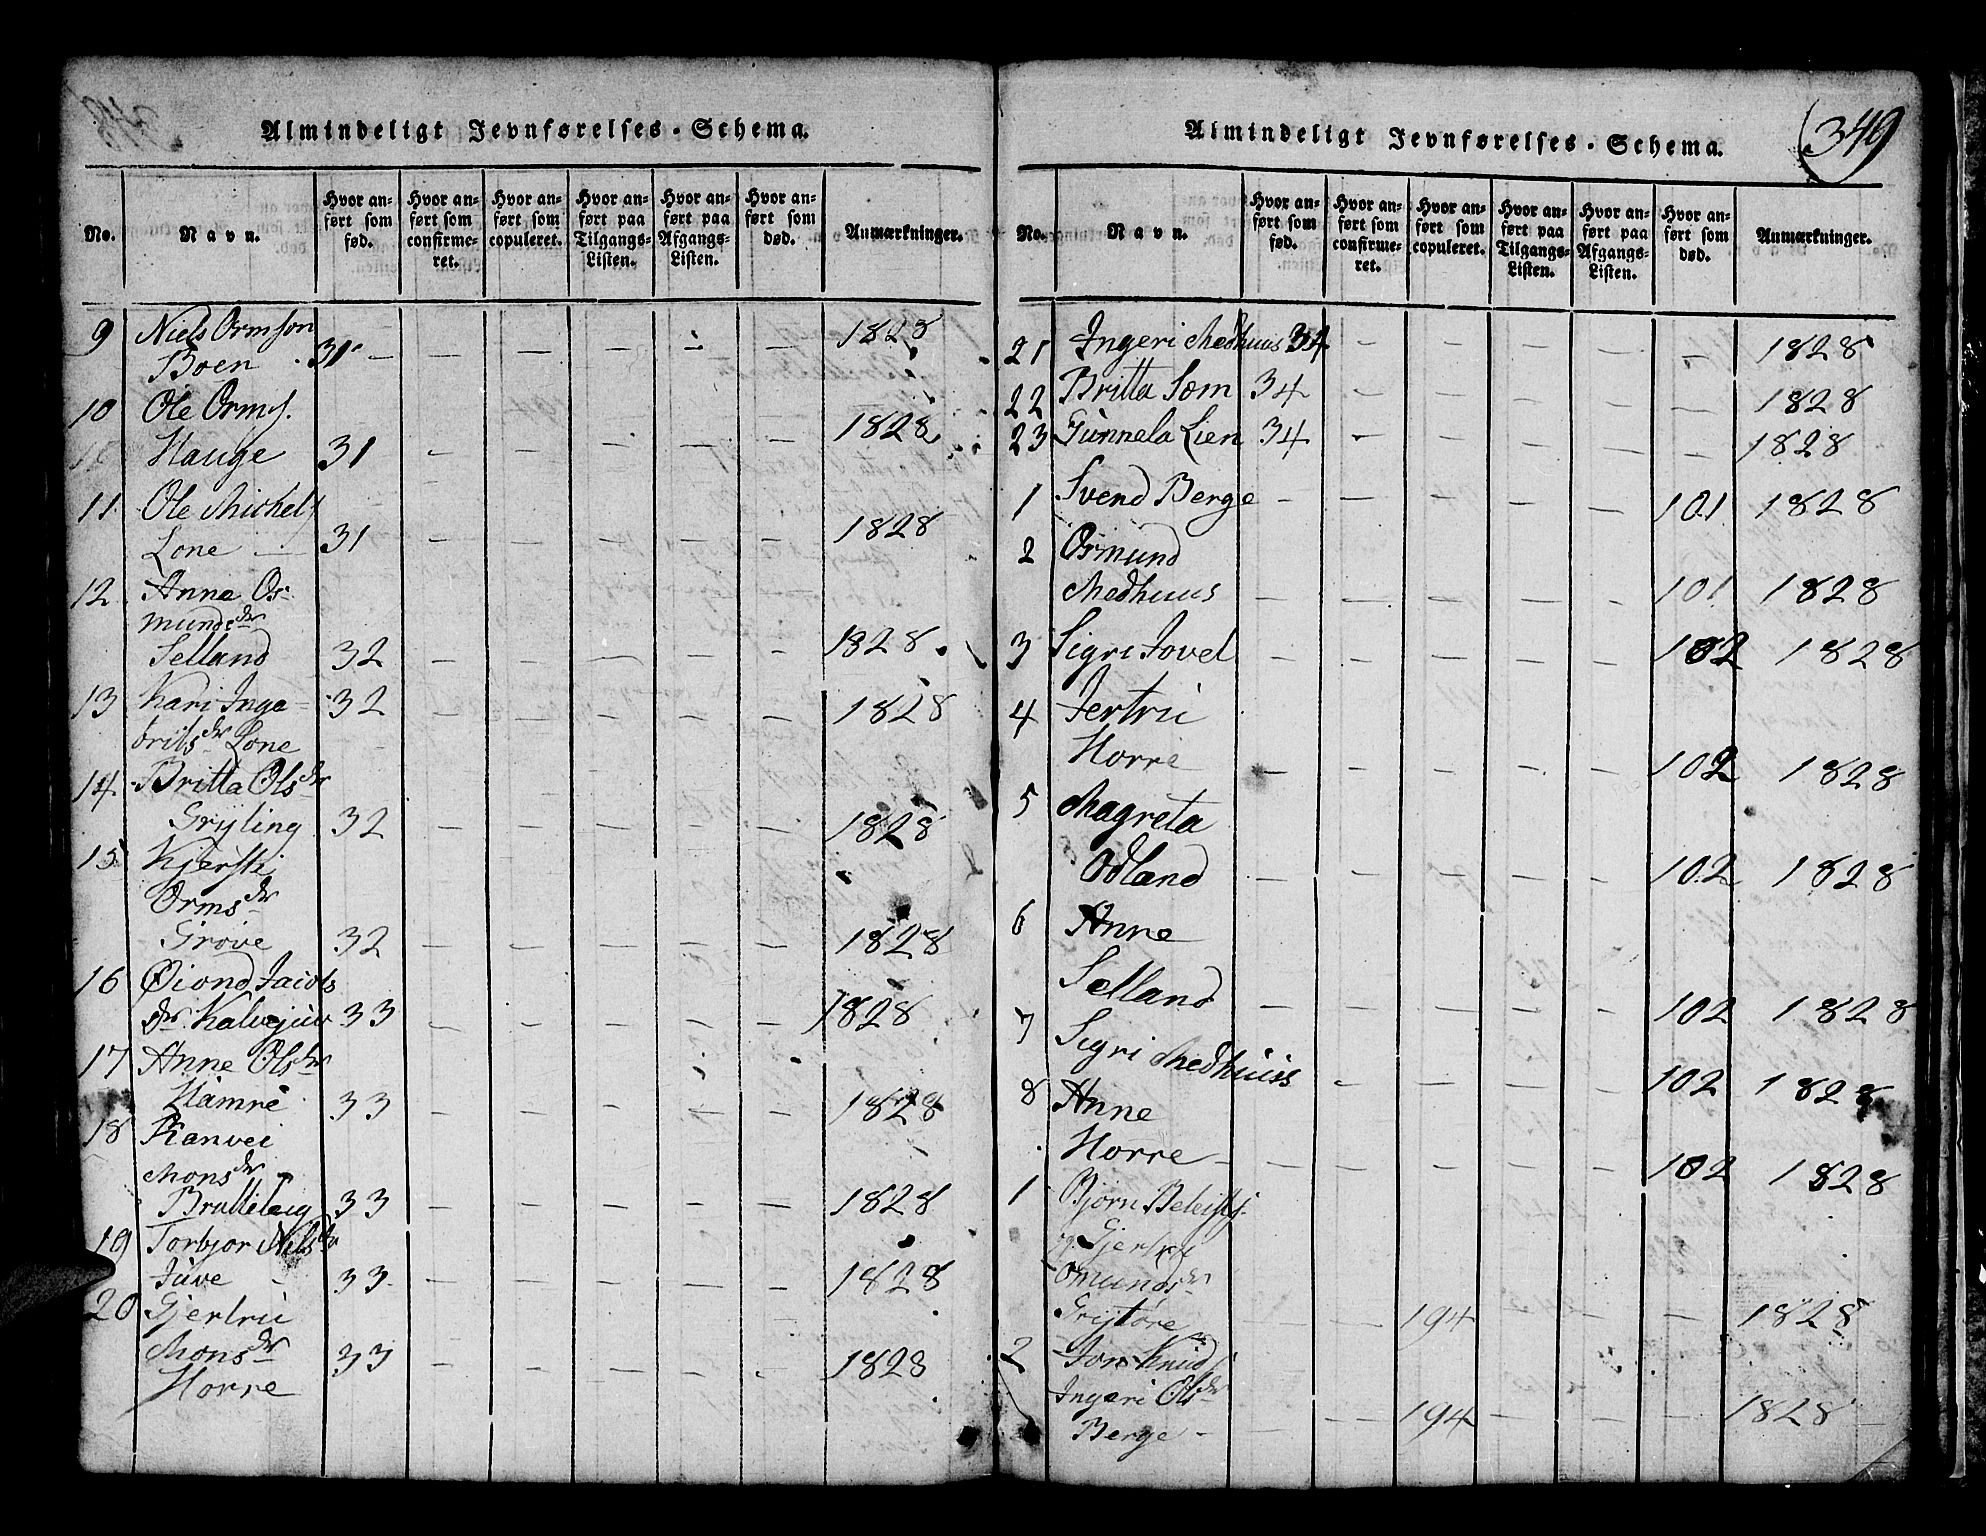 Almindeligt Jevnførelses-Schema.
No. Navn. Hvor anført som fød. Hvor anført som confirmeret. Hvor anført som copuleret. Hvor anført paa Tilgangs-Listen. Hvor anført paa Afgangs-Listen. Hvor anført som død. Anmærkninger.
9 Niels Ormson 1828
Boen 31
10 Ole Orms. 1828
Hauge 31
11 Ole Michels
Lone 31 1828
12 Anne Os-
munds dr
Selland 32 1828
13 Kari Inge- 32 1828
brits dr Lone
14 Britta Ols dr
Gryting 32 1828
15 Kjersti
Orms dr
Grove 32 1828
16 Øiond Jacobs
dr Kalvejuv 33 1828
17 Anne Ols dr
Hamre 33 1828
18 Ranvei
Mons dr
Brattiteig 33 1828
19 Torbjor Nils dr
Juve 33 1828
20 Gjertrü
Mons dr 33 1828
Horre
Almindeligt Jevnførelses-Schema.
349
No. Navn. Hvor anført som fød. Hvor anført som confirmeret. Hvor anført som copuleret. Hvor anført paa Tilgangs-Listen. Hvor anført paa Afgangs-Listen. Hvor anført som død. Anmærkninger.
21 Ingeri Medhuus 34 1828
22 Britta Sæm 34 1828
23 Gunnela Lien 34 1828
1 Svend Berge 101 1828
2 Osmund
Medhuus 101 1828
3 Sigri Jovel 102 1828
4 Jertrü
Horre 102 1828
5 Magreta
Odland 102 1828
6 Anne
Selland 102 1828
7 Sigri Medhuus 102 1828
8 Anne
Horre 102 1828
1 Bjørn
Gjertrü
Omunds dr
Grytøre 194 1828
2 Jon Knuds
Ingeri Ols dr
Berge 194 1828